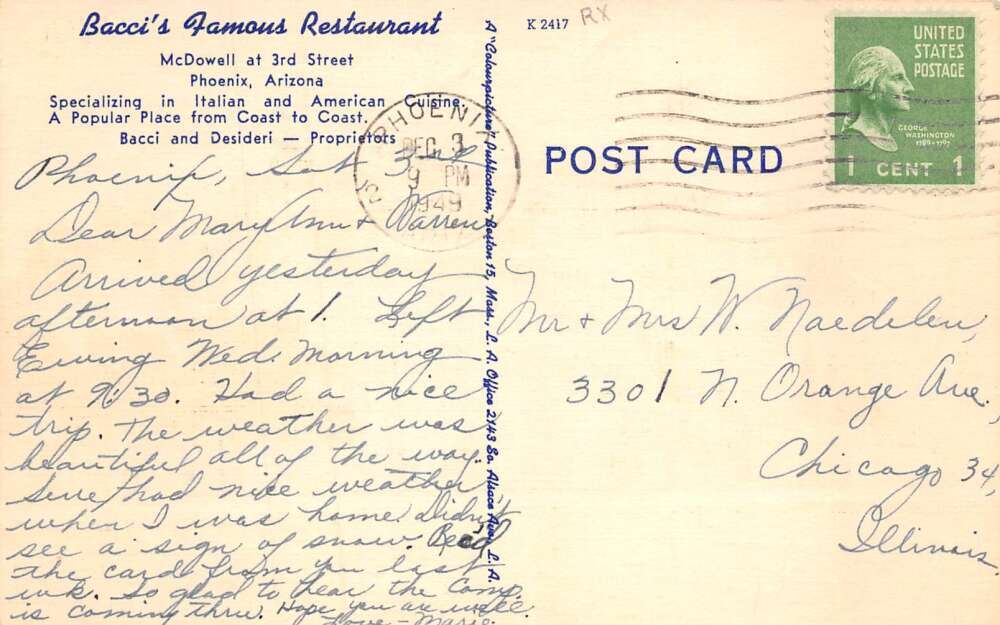 Bacci's Famous Restaurant
McDowell at 3rd Street
Phoenix, Arizona
Specializing in Italian and American Cuisine.
A Popular Place from Coast to Coast.
Bacci and Desideri — Proprietors
Phoenix, Sat 3rd
Dear Mary Ann & Warren
Arrived yesterday
afternoon at 1. Left
Ewing Wed. Morning
at 9:30. Had a nice
trip. The weather was
beautiful all of the way.
Sure had nice weather
when I was home. Didn't
see a sign of snow. Rec'd
the card from you last
wk. So glad to hear the Comp.
is coming thru. Hope you are well
Love - Marie
A "Colourpicture" Publication, Boston 15, Mass., L. A. Office 2143 So. Alsace Ave., L. A.
K 2417
RX
PHOENIX
DEC 3
9 PM
1949
POST CARD
UNITED
STATES
POSTAGE
GEORGE
WASHINGTON
1789-1797
1 CENT 1
Mr & Mrs W. Naedelen,
3301 N. Orange Ave.,
Chicago 34,
Illinois.